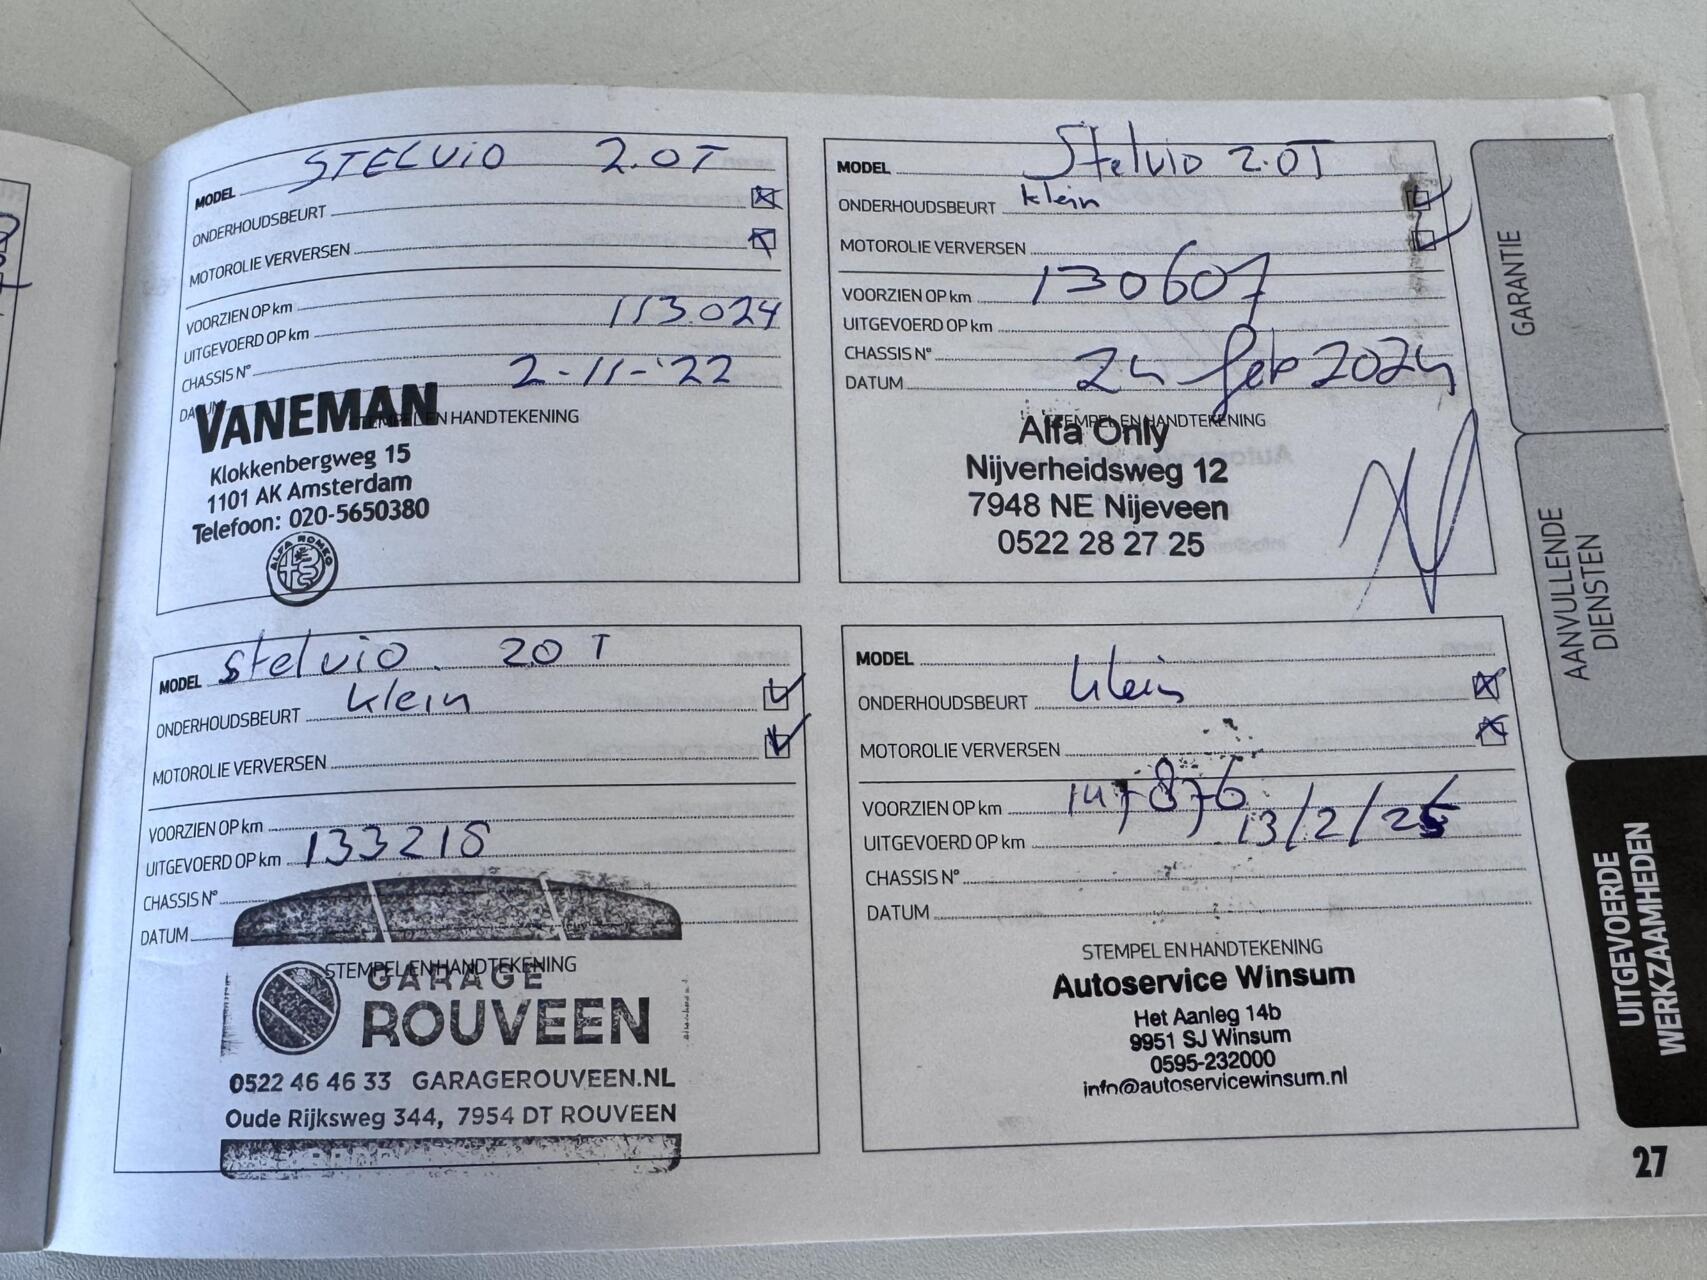 MODEL STELVIO 2.0T
ONDERHOUDSBEURT
MOTOROLIE VERVERSEN
VOORZIEN OP km
UITGEVOERD OP km 113.024
CHASSIS N°
DATUM 2-11-'22
STEMPEL EN HANDTEKENING
VANEMAN
Klokkenbergweg 15
1101 AK Amsterdam
Telefoon: 020-5650380
ALFA ROMEO
MODEL Stelvio 2.0T
ONDERHOUDSBEURT klein
MOTOROLIE VERVERSEN
VOORZIEN OP km 130607
UITGEVOERD OP km
CHASSIS N°
DATUM 24 feb 2024
STEMPEL EN HANDTEKENING
Alfa Only
Nijverheidsweg 12
7948 NE Nijeveen
0522 28 27 25
MODEL Stelvio. 20 T
ONDERHOUDSBEURT klein
MOTOROLIE VERVERSEN
VOORZIEN OP km
UITGEVOERD OP km 133218
CHASSIS N°
DATUM
STEMPEL EN HANDTEKENING
GARAGE
ROUVEEN
0522 46 46 33 GARAGEROUVEEN.NL
Oude Rijksweg 344, 7954 DT ROUVEEN
MODEL
ONDERHOUDSBEURT klein
MOTOROLIE VERVERSEN
VOORZIEN OP km 147876
UITGEVOERD OP km 13/2/25
CHASSIS N°
DATUM
STEMPEL EN HANDTEKENING
Autoservice Winsum
Het Aanleg 14b
9951 SJ Winsum
0595-232000
info@autoservicewinsum.nl
GARANTIE
AANVULLENDE
DIENSTEN
UITGEVOERDE
WERKZAAMHEDEN
27